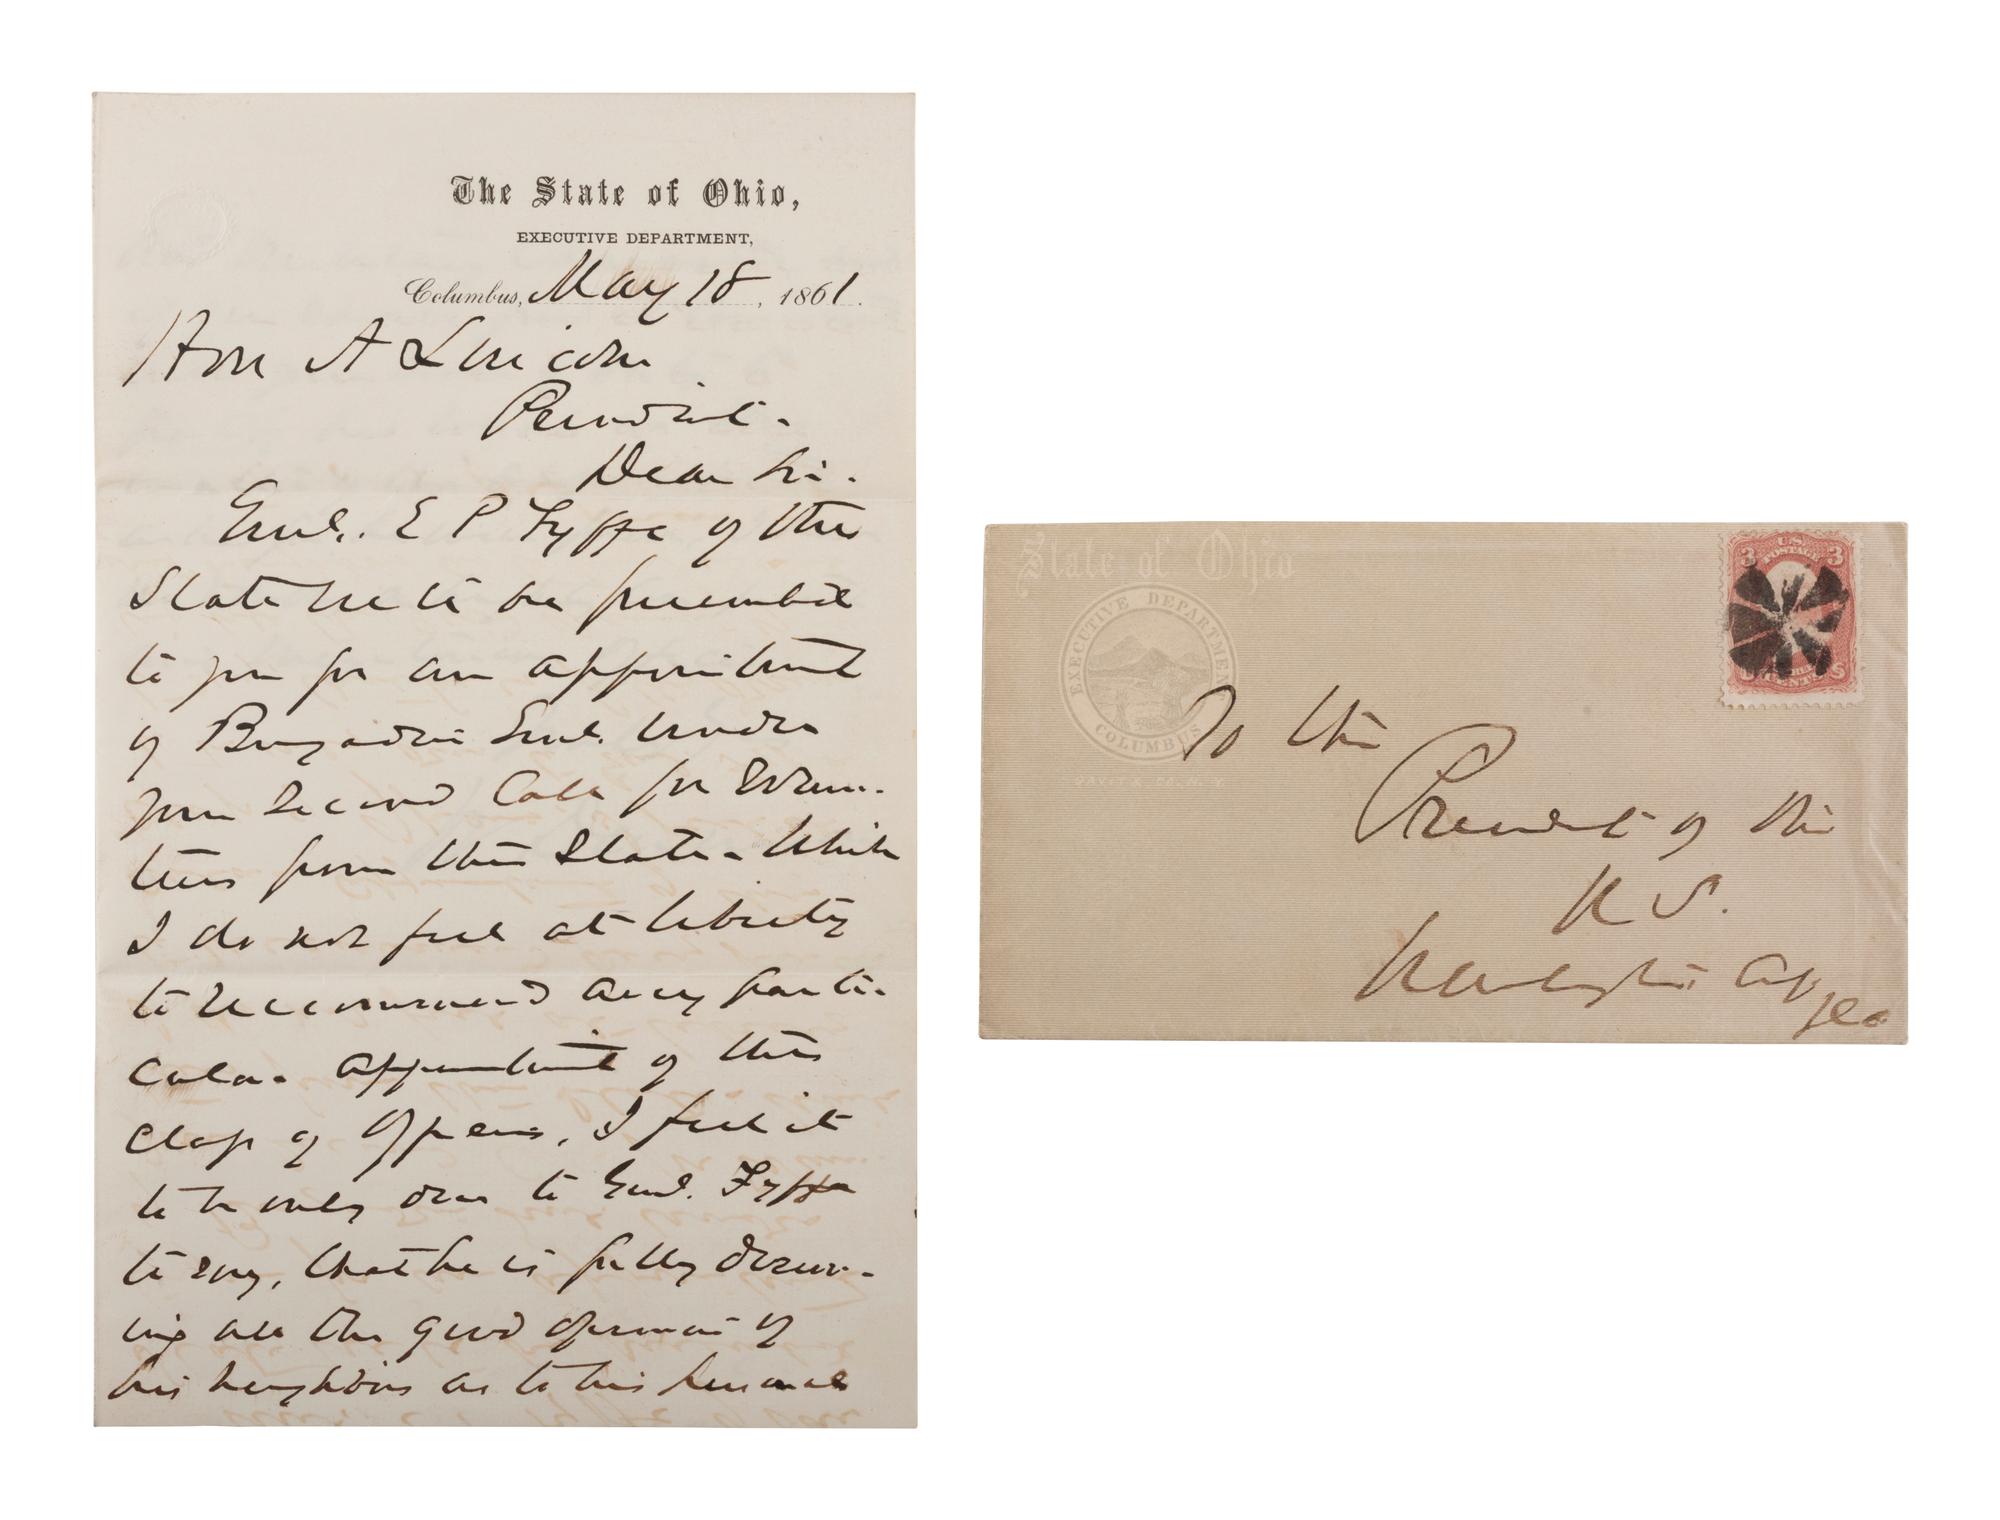 The State of Ohio,
EXECUTIVE DEPARTMENT,
Columbus, May 18, 1861.
Hon A Lincoln
President.
Dear Sir.
Genl. E P Fyffe of this
State is to be presented
to you for an appointment
of Brigadier Genl. under
your Second Call for Volun-
teers from this State. While
I do not feel at liberty
to recommend any parti-
cular appointment of this
class of officers, I feel it
to be only due to Genl. Fyffe
to say, that he is fully deserv-
ing all the good opinion of
his neighbors as to his personal
State of Ohio
EXECUTIVE DEPARTMENT
COLUMBUS
3 U.S. POSTAGE 3
CENTS
To the
President of the
U S.
Washington City